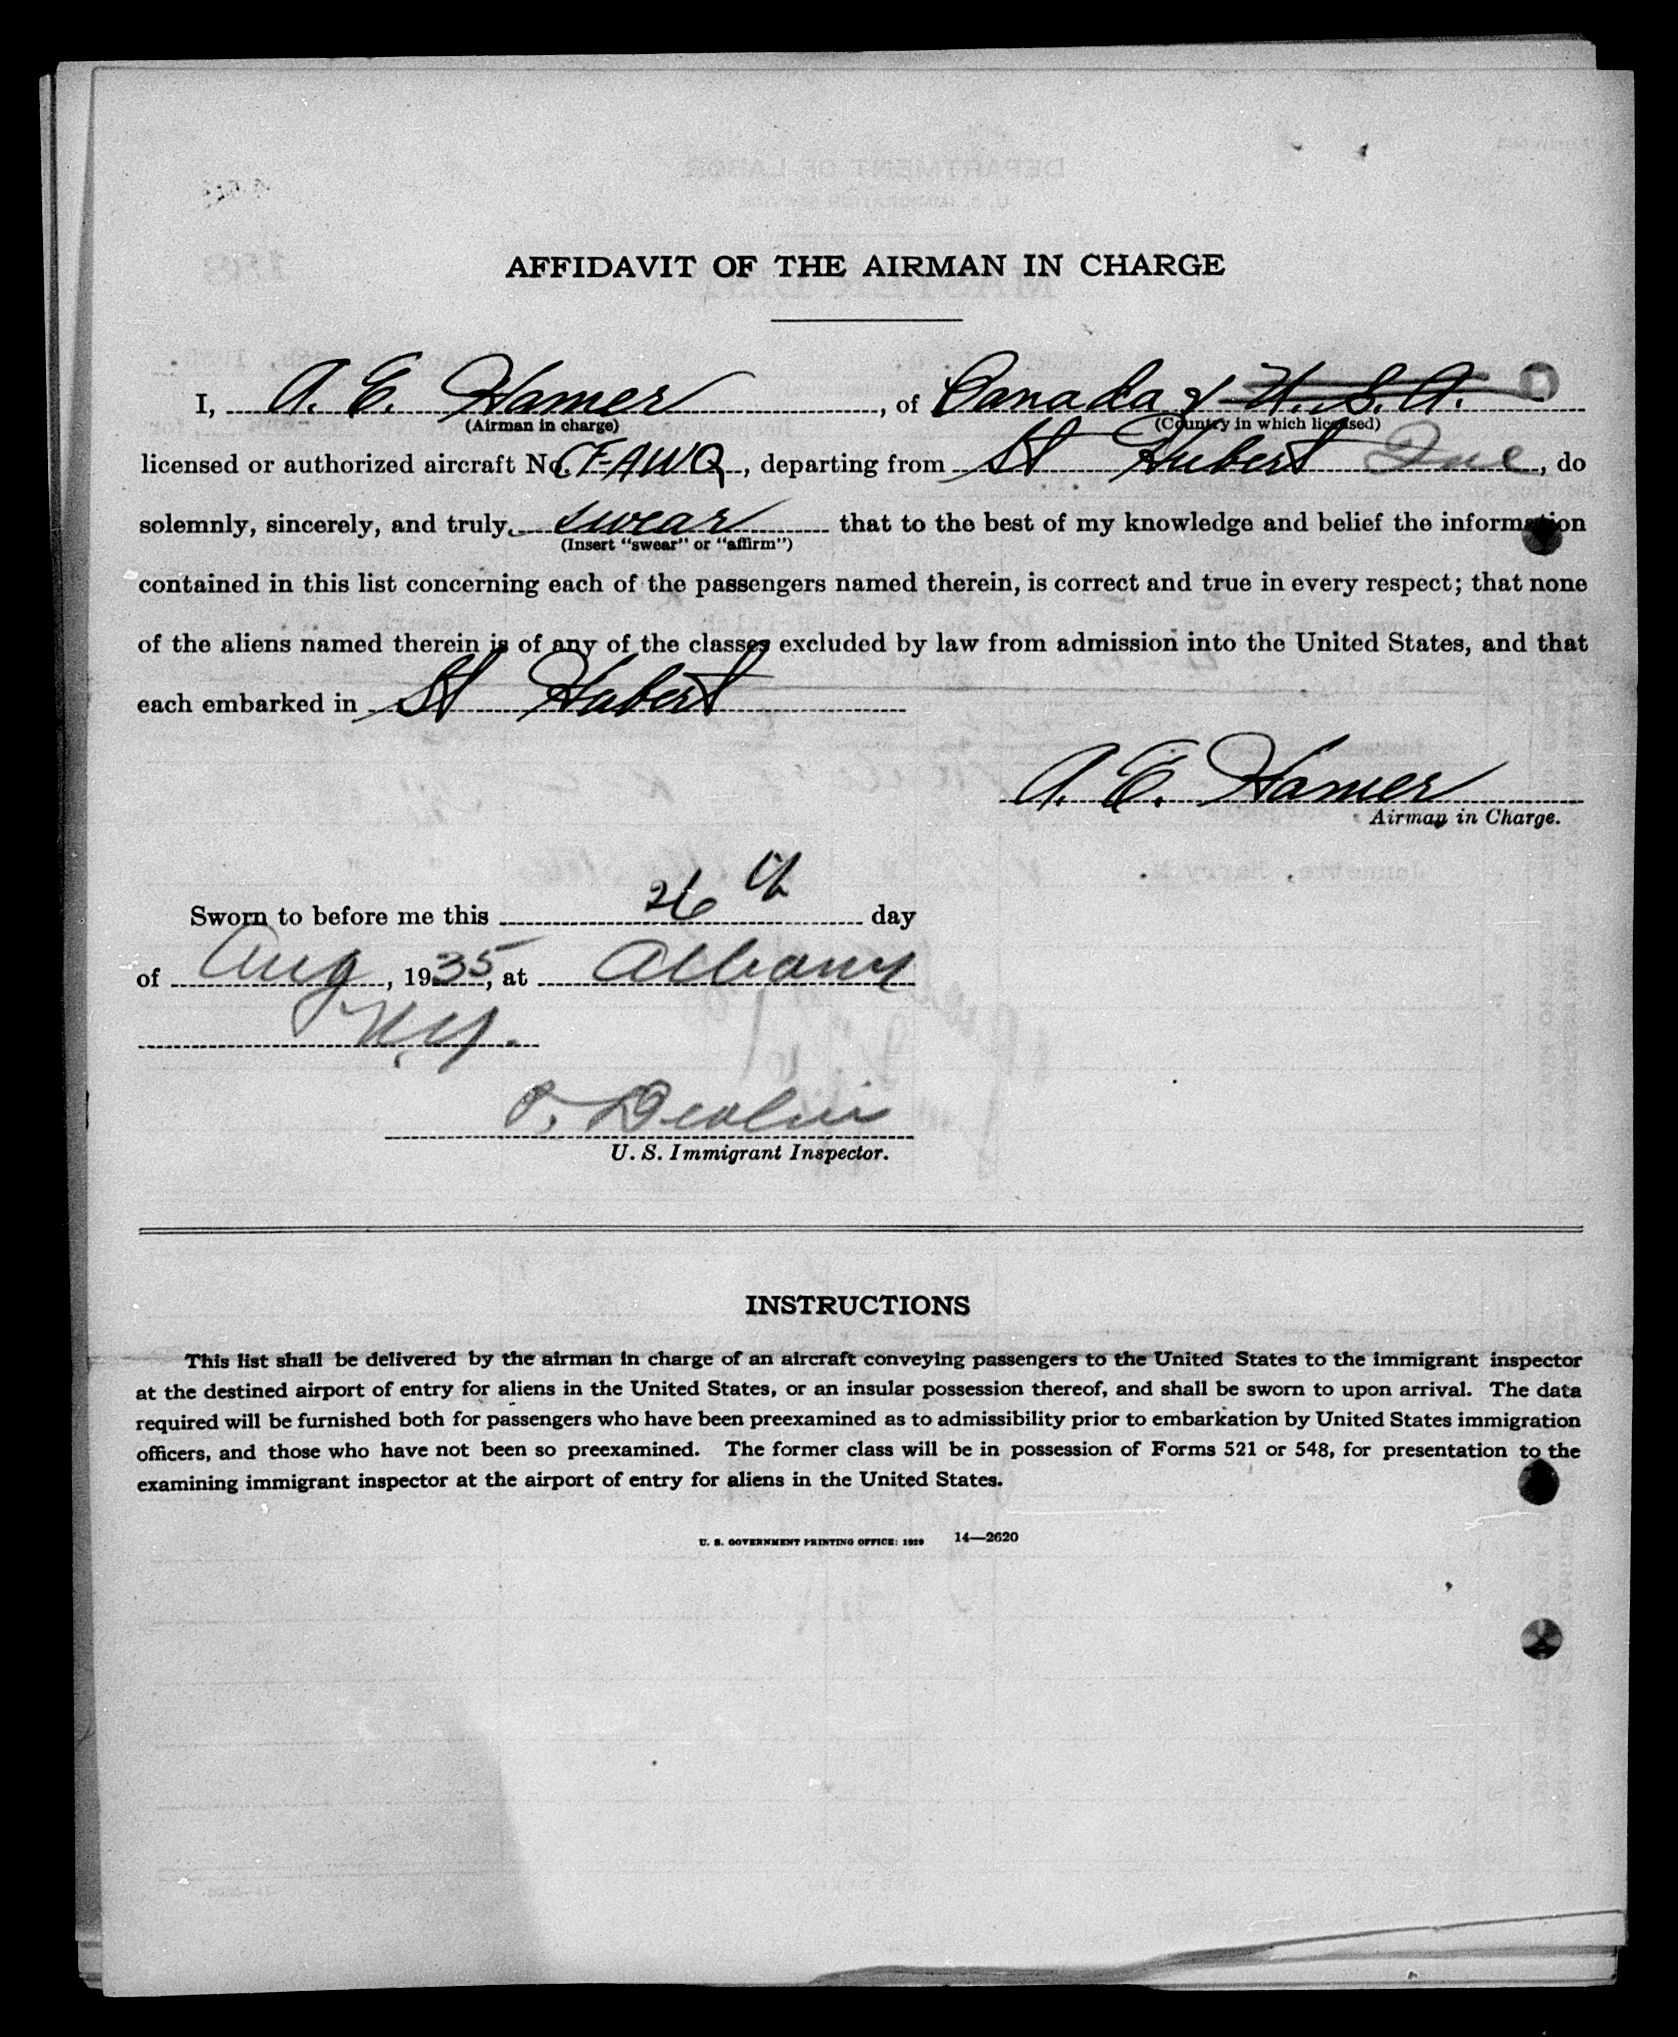 AFFIDAVIT OF THE AIRMAN IN CHARGE
I, A. E. Hamer, of Canada & U.S.A.
(Airman in charge) (Country in which licensed)
licensed or authorized aircraft No. CF-AWQ, departing from St Hubert Que, do
solemnly, sincerely, and truly, swear that to the best of my knowledge and belief the information
(Insert "swear" or "affirm")
contained in this list concerning each of the passengers named therein, is correct and true in every respect; that none
of the aliens named therein is of any of the classes excluded by law from admission into the United States, and that
each embarked in St Hubert
A. E. Hamer
Airman in Charge.
Sworn to before me this 26th day
of Aug, 1935, at Albany
N.Y.
U. S. Immigrant Inspector.
INSTRUCTIONS
This list shall be delivered by the airman in charge of an aircraft conveying passengers to the United States to the immigrant inspector
at the destined airport of entry for aliens in the United States, or an insular possession thereof, and shall be sworn to upon arrival. The data
required will be furnished both for passengers who have been preexamined as to admissibility prior to embarkation by United States immigration
officers, and those who have not been so preexamined. The former class will be in possession of Forms 521 or 548, for presentation to the
examining immigrant inspector at the airport of entry for aliens in the United States.
U. S. GOVERNMENT PRINTING OFFICE: 1929 14—2620